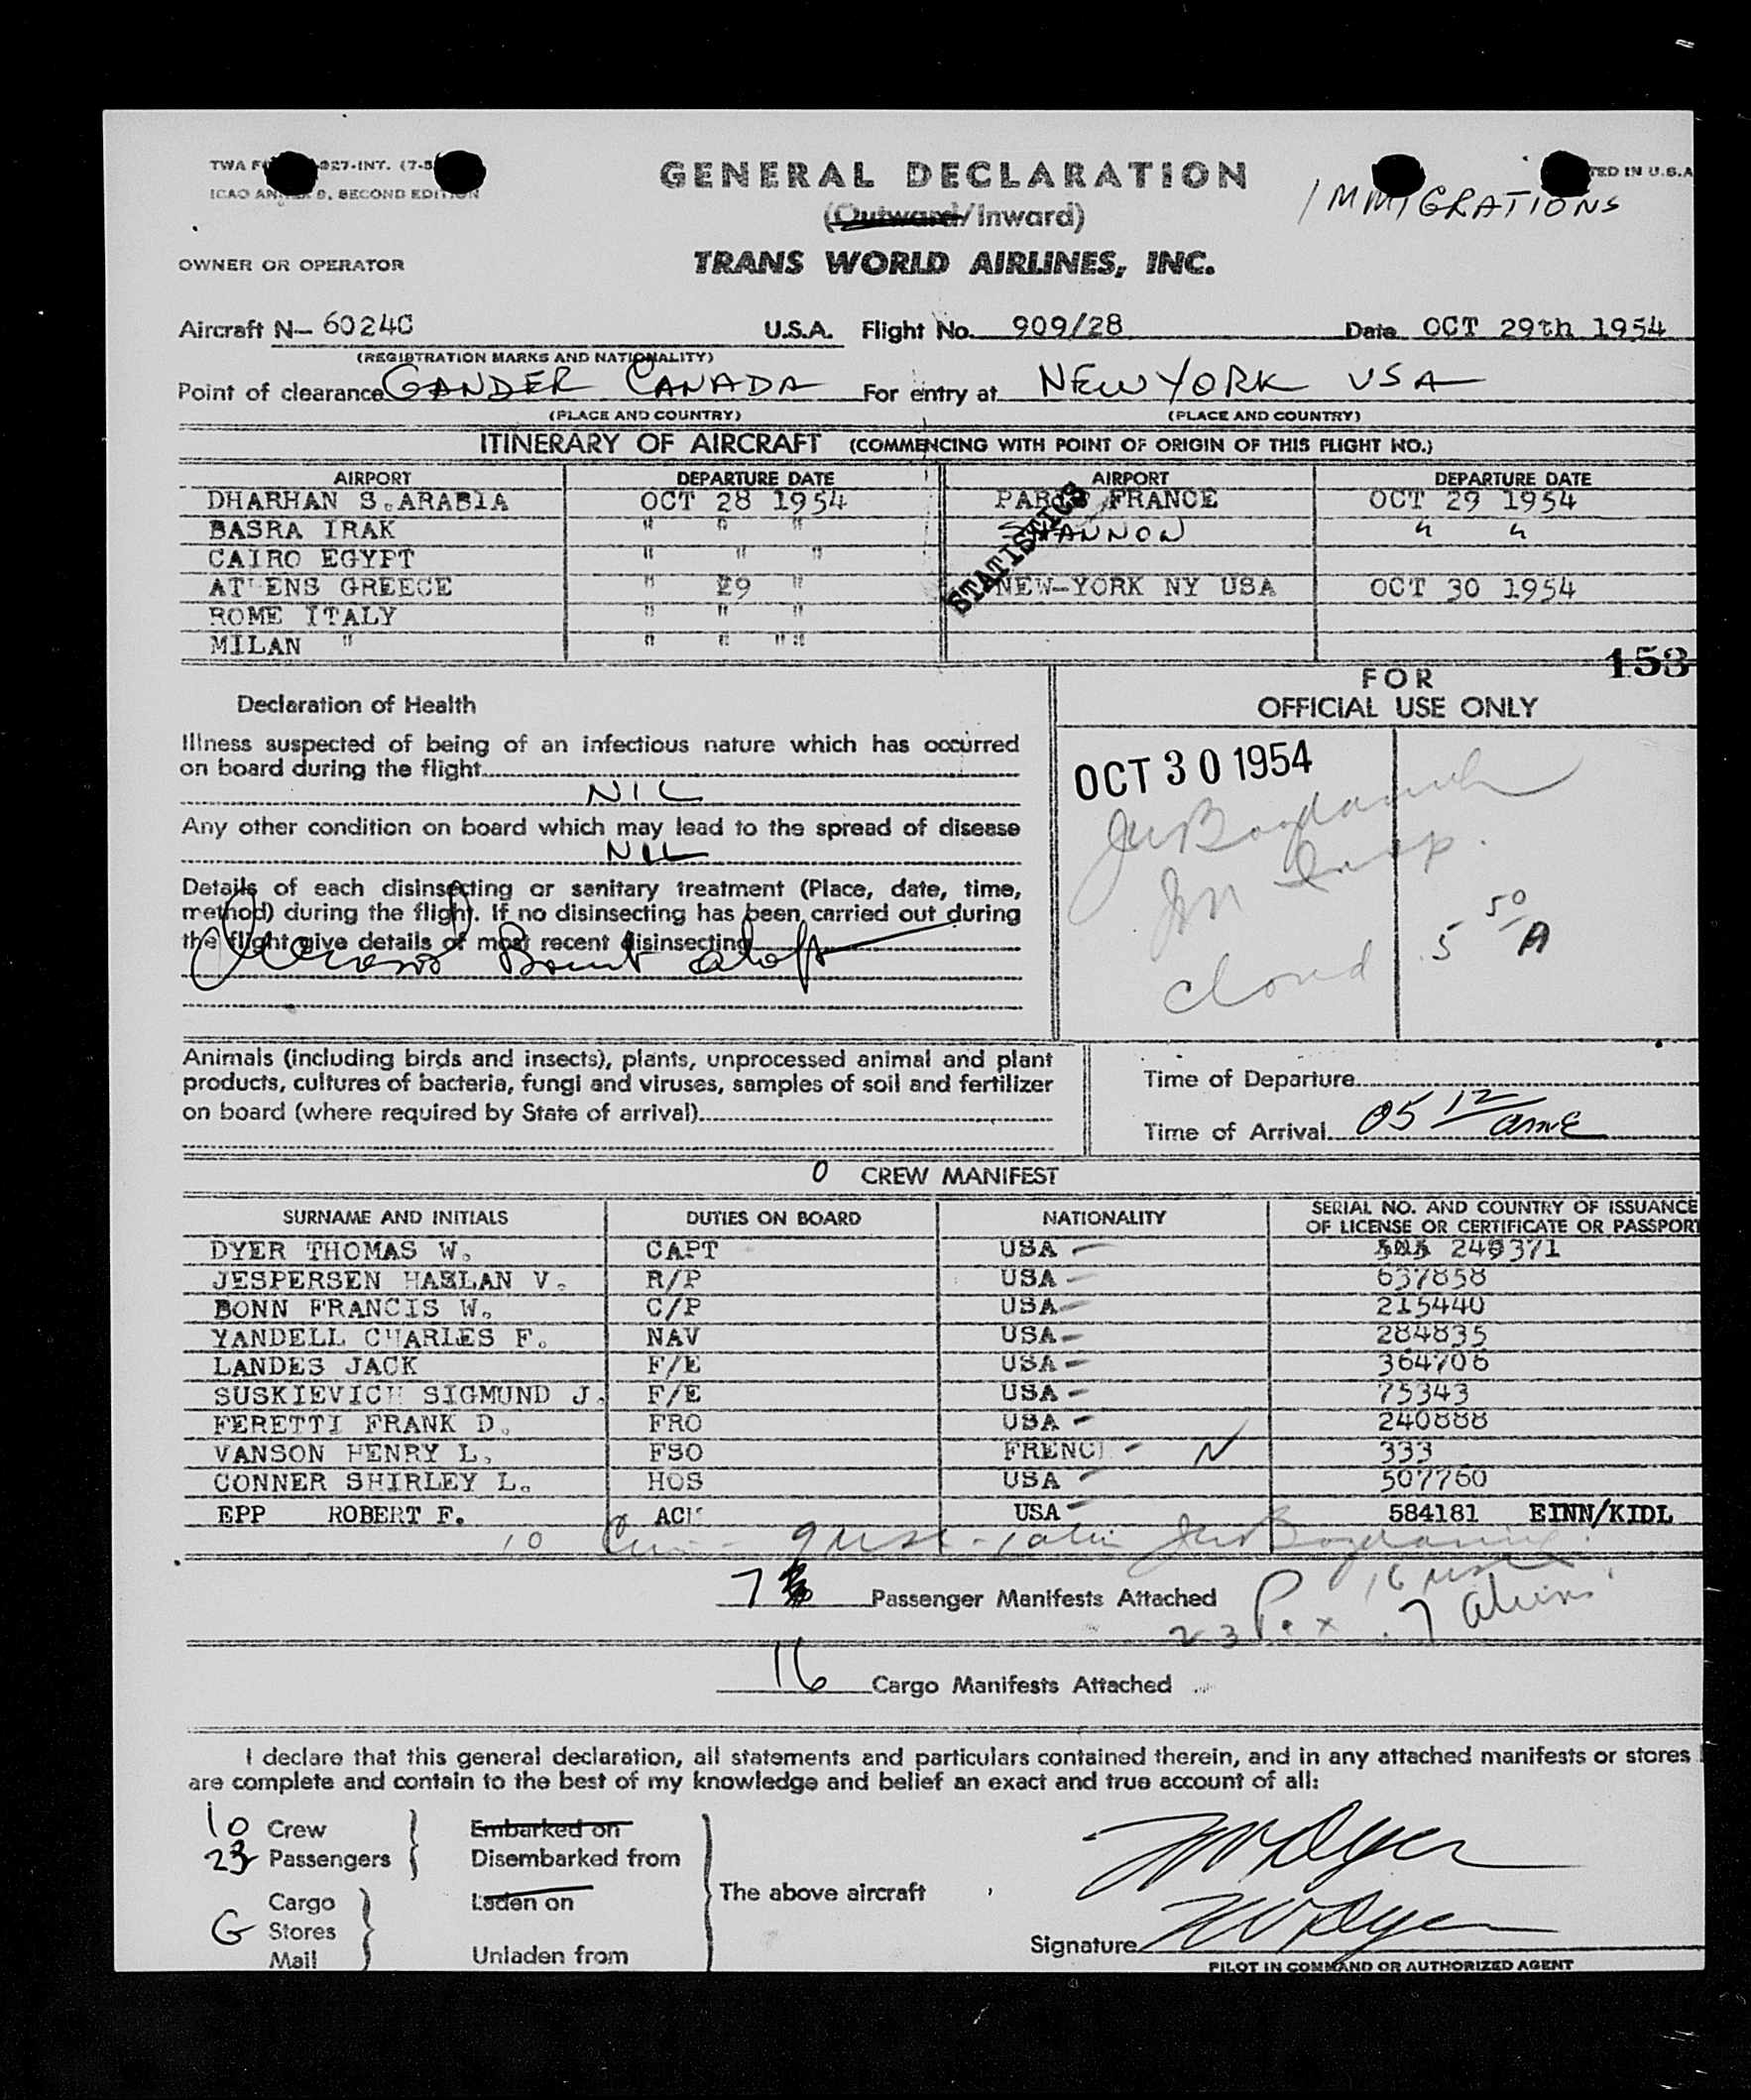 GENERAL DECLARATION
(Outward/Inward)
IMMIGRATIONS
TRANS WORLD AIRLINES, INC.
OWNER OR OPERATOR
Aircraft N- 6024C U.S.A. Flight No. 909/28 Date OCT 29th 1954
(REGISTRATION MARKS AND NATIONALITY)
Point of clearance GANDER CANADA For entry at NEW YORK USA
(PLACE AND COUNTRY) (PLACE AND COUNTRY)
ITINERARY OF AIRCRAFT (COMMENCING WITH POINT OF ORIGIN OF THIS FLIGHT NO.)
AIRPORT DEPARTURE DATE AIRPORT DEPARTURE DATE
DHARHAN S.ARABIA OCT 28 1954 FRANCE OCT 29 1954
BASRA IRAK " " " " "
CAIRO EGYPT " " "
GREECE " 29 " NEW-YORK NY USA OCT 30 1954
ROME ITALY " " "
MILAN " " " "
STATISTICS
153
Declaration of Health
FOR
OFFICIAL USE ONLY
Illness suspected of being of an infectious nature which has occurred
on board during the flight
NIL
OCT 30 1954
Any other condition on board which may lead to the spread of disease
NIL
Details of each disinsecting or sanitary treatment (Place, date, time,
method) during the flight. If no disinsecting has been carried out during
the flight give details of most recent disinsecting
5 50 A
Animals (including birds and insects), plants, unprocessed animal and plant
products, cultures of bacteria, fungi and viruses, samples of soil and fertilizer
on board (where required by State of arrival)
Time of Departure
Time of Arrival 05 12
0 CREW MANIFEST
SURNAME AND INITIALS DUTIES ON BOARD NATIONALITY SERIAL NO. AND COUNTRY OF ISSUANCE
OF LICENSE OR CERTIFICATE OR PASSPORT
DYER THOMAS W. CAPT USA 249371
JESPERSEN HARLAN V. R/P USA 637858
BONN FRANCIS W. C/P USA 215440
YANDELL CHARLES F. NAV USA 284835
LANDES JACK F/E USA 364706
SUSKIEVICH SIGMUND J. F/E USA 75343
FERETTI FRANK D. FRO USA 240888
VANSON HENRY L. FSO FRENCH N 333
CONNER SHIRLEY L. HOS USA 507760
EPP ROBERT F. USA 584181 EINN/KIDL
10
7 Passenger Manifests Attached
23 Pax 7 aliens
16 Cargo Manifests Attached
I declare that this general declaration, all statements and particulars contained therein, and in any attached manifests or stores
are complete and contain to the best of my knowledge and belief an exact and true account of all:
10 Crew Embarked on
23 Passengers Disembarked from
Cargo Laden on The above aircraft
G Stores
Mail Unladen from
TWDyer
Signature TWDyer
PILOT IN COMMAND OR AUTHORIZED AGENT